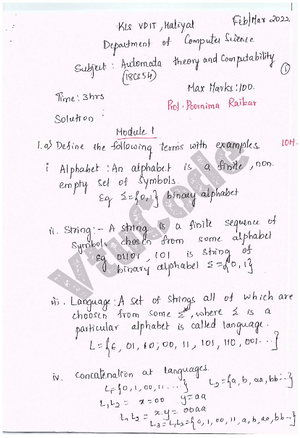 KLS VDIT, Haliyal
Feb/Mar 2022
Department of Computer Science
Subject : Automata theory and Computability
(18CS54)
1
Max Marks : 100.
Time : 3hrs
Prof. Poornima Raibar
Solution :
Module 1
1.a) Define the following terms with examples 10M
i Alphabet : An alphabet is a finite, non
empty set of symbols
Eg Σ={0,1} binary alphabet
ii. String :- A string is a finite sequence of
symbols chosen from some alphabet
eg 01101, 101 is string of
binary alphabet Σ={0,1}
iii. Language : A set of strings all of which are
choosen from some Σ*, where Σ is a
particular alphabet is called language.
L={ε, 01, 10, 00, 11, 101, 110, 001...}
iv. concatenation of languages.
L₁={0, 1, 00, 11...} L₂={a, b, aa, bb..}
L₁L₂ = x=00 y=aa
L₁L₂ = x.y = 00aa
L₃=L₁L₂={0, 1, 00, 11, a, b, aa, bb...}
VtuCode